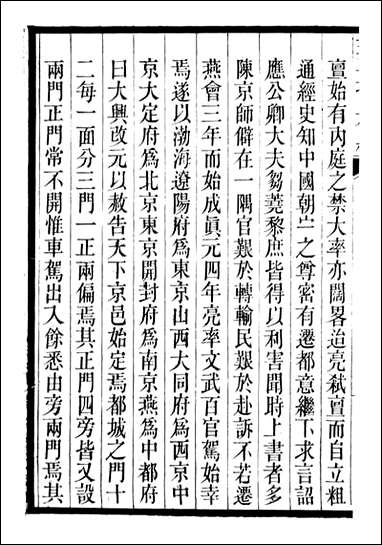 亶始有内庭之禁大率亦闊畧迨亮弒亶而自立粗
通經史知中國朝之尊密有遷都意繼下求言詔
應公卿大夫芻蕘黎庶皆得以利害聞時上書者多
陳京師僻在一隅官艱於轉輸民艱於赴訴不若遷
燕會三年而始成眞元四年亮率文武百官駕始幸
焉遂以渤海遼陽府爲東京山西大同府爲西京中
京大定府爲北京東京開封府爲南京燕爲中都府
曰大興改元以赦告天下京邑始定焉都城之門十
二每一面分三門一正兩偏焉其正門四旁皆又設
兩門正門常不開惟車駕出入餘悉由旁兩門焉其